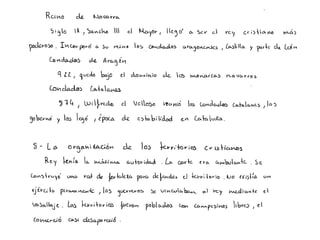 Reino de Navarra
Siglo IX, Sancho III el Mayor, llegó a ser el rey cristiano más
poderoso. Incorporó a su reino los condados aragoneses, Castilla y parte de León
Condados de Aragón
922, quedo bajo el dominio de los monarcas navarros
Condados Catalanes
974, Wilfredo el Velloso reunió los Condados Catalans, los
gobernó y los legó, época de estabilidad en Cataluña.
5 - La organización de los territorios cristianos
Rey tenía la máxima autoridad. La corte era ambulante. Se
construyó una red de fortaleza para defender el territorio. No existía un
ejército permanente, los guerreros se vinculaban al rey mediante el
vasallaje. Los territorios fueron poblados con campesinos libres, el
comercio casi desapareció.